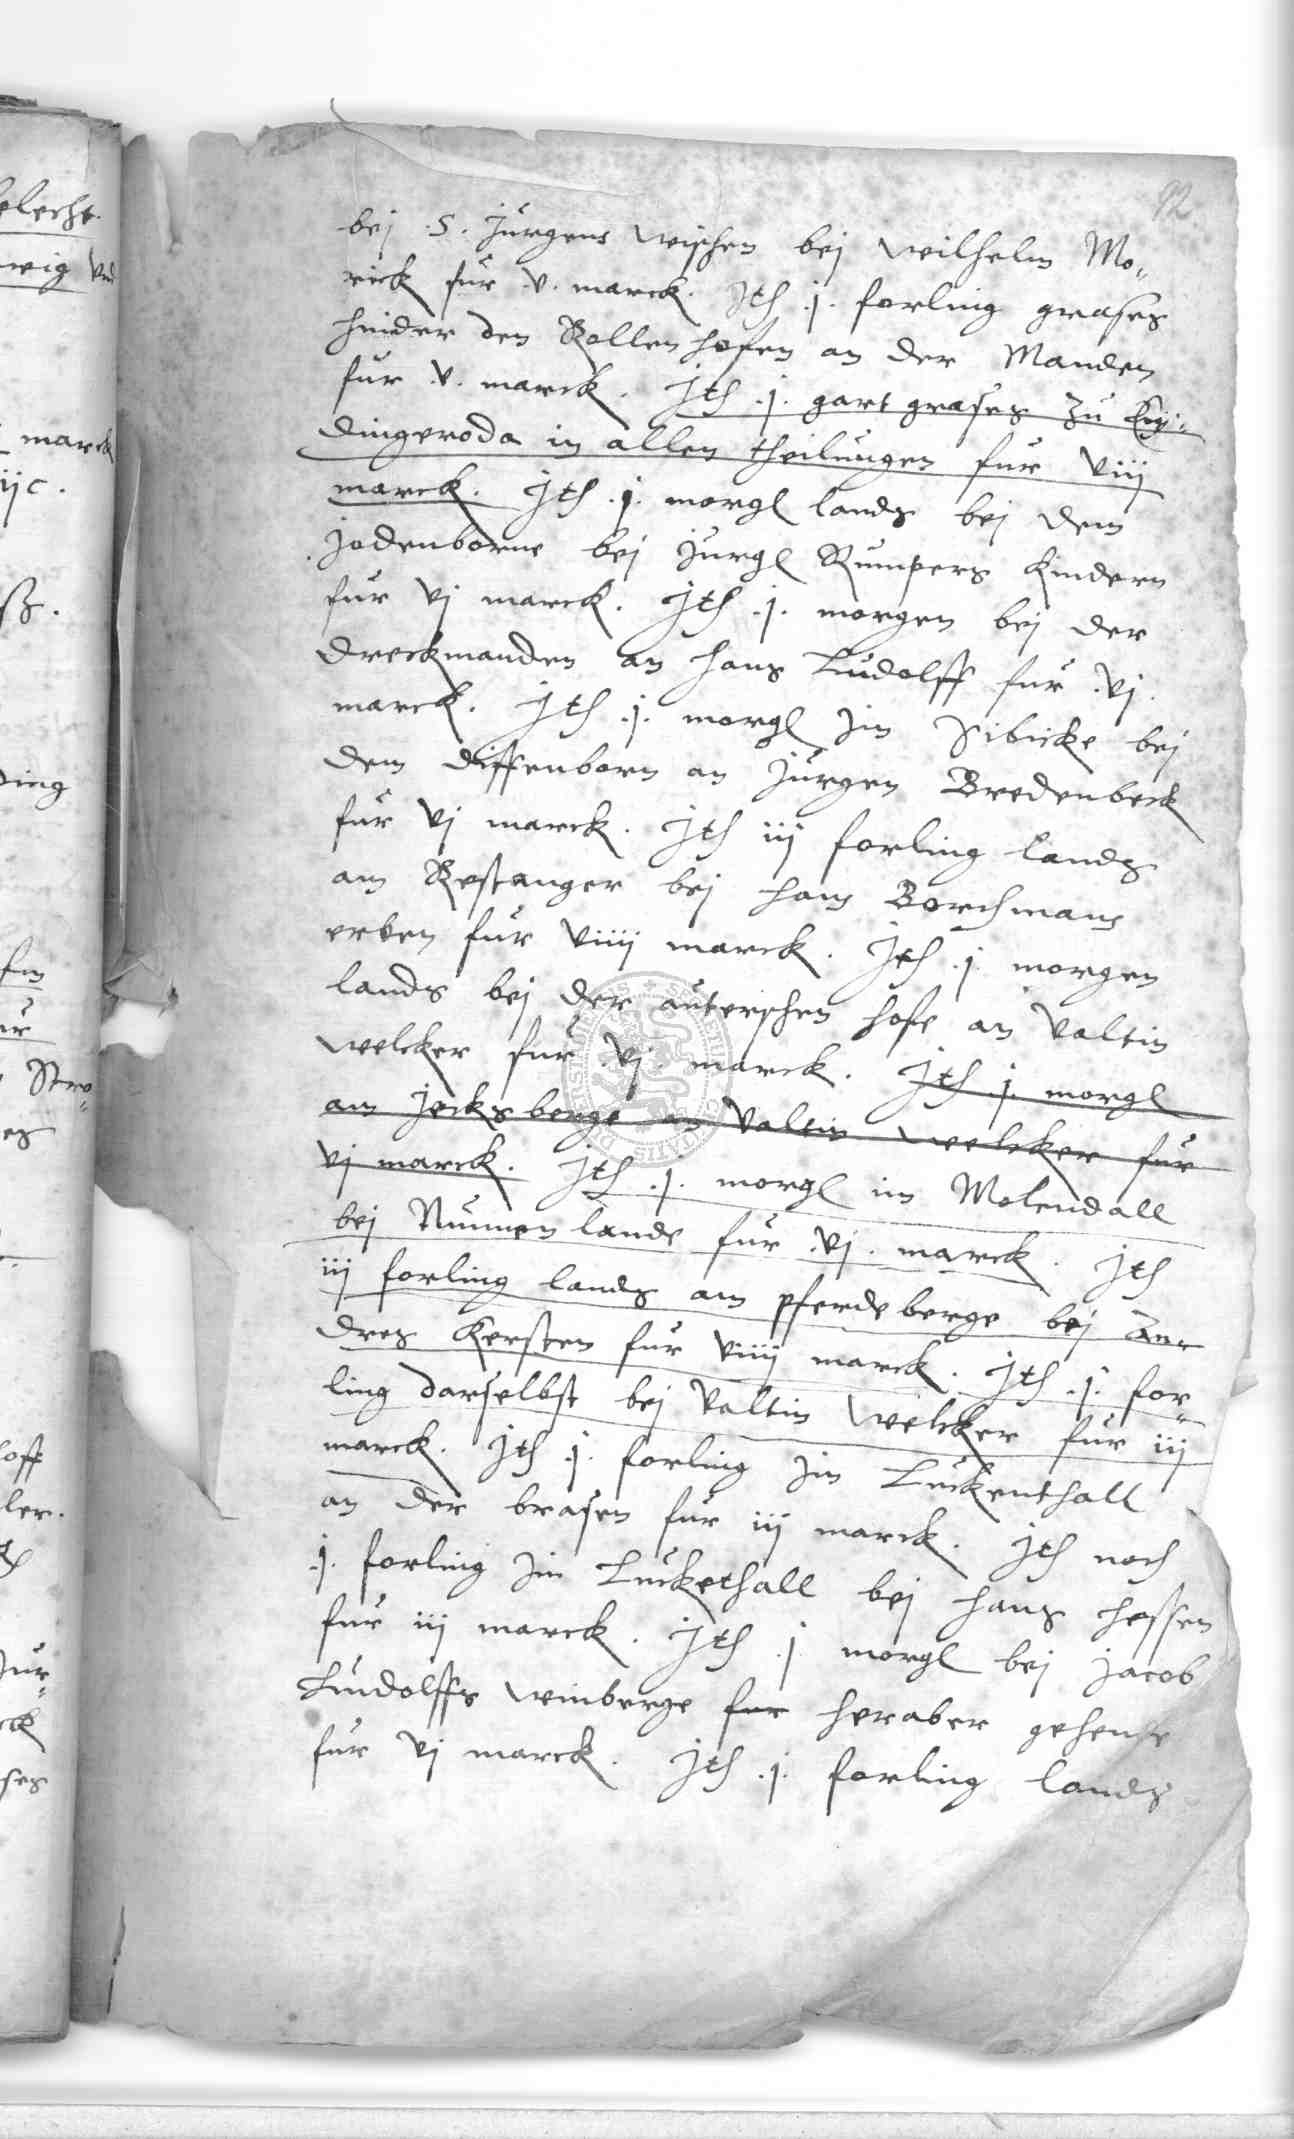 92
bej .S. Jurgens wischen bej wilhelm Mo„
rick fur .v. marck. Jth .j. forling grases
hinder den Kollenhofen an der Manden
fur .v. marck. Jth .j. gart grases zu
dingeroda in allen theilungen fur viij
marck. Jth .j. morgl lands bej dem
Jodenborne bej Jurgl Rumpers kindern
fur vj marck. Jth .j. morgen bej der
dreckmanden an hans Ludolff fur .vj.
marck. Jth .j. morgl Jm Sibicke bej
dem diffenborn an Jurgen Bredenbeck
fur vj marck. Jth iij forling lands
am Restanger bej hans Borchmans
erben fur viiij marck. Jth .j. morgen
lands bej der auterschen hofe an Valtin
welcker fur .vj. marck. Jth .j. morgl
am Jecksberge an Valtin welcker fur
vj marck. Jth .j. morgl im Molendall
bej Nunnen lande fur .vj. marck. Jth
iij forling lands am pferdeberge bej An„
dres Kersten fur viiij marck. Jth .j. for„
ling darselbst bej Valtin Welcker fur iij
marck. Jth .j. forling Jm Luckenthall
an der brasen fur iij marck. Jth noch
.j. forling Jm Luckethall bej hans hessen
fur iij marck. Jth .j. morgl bej Jacob
Ludolffs winberge fur heraber gehense
fur vj marck. Jth .j. forling lands